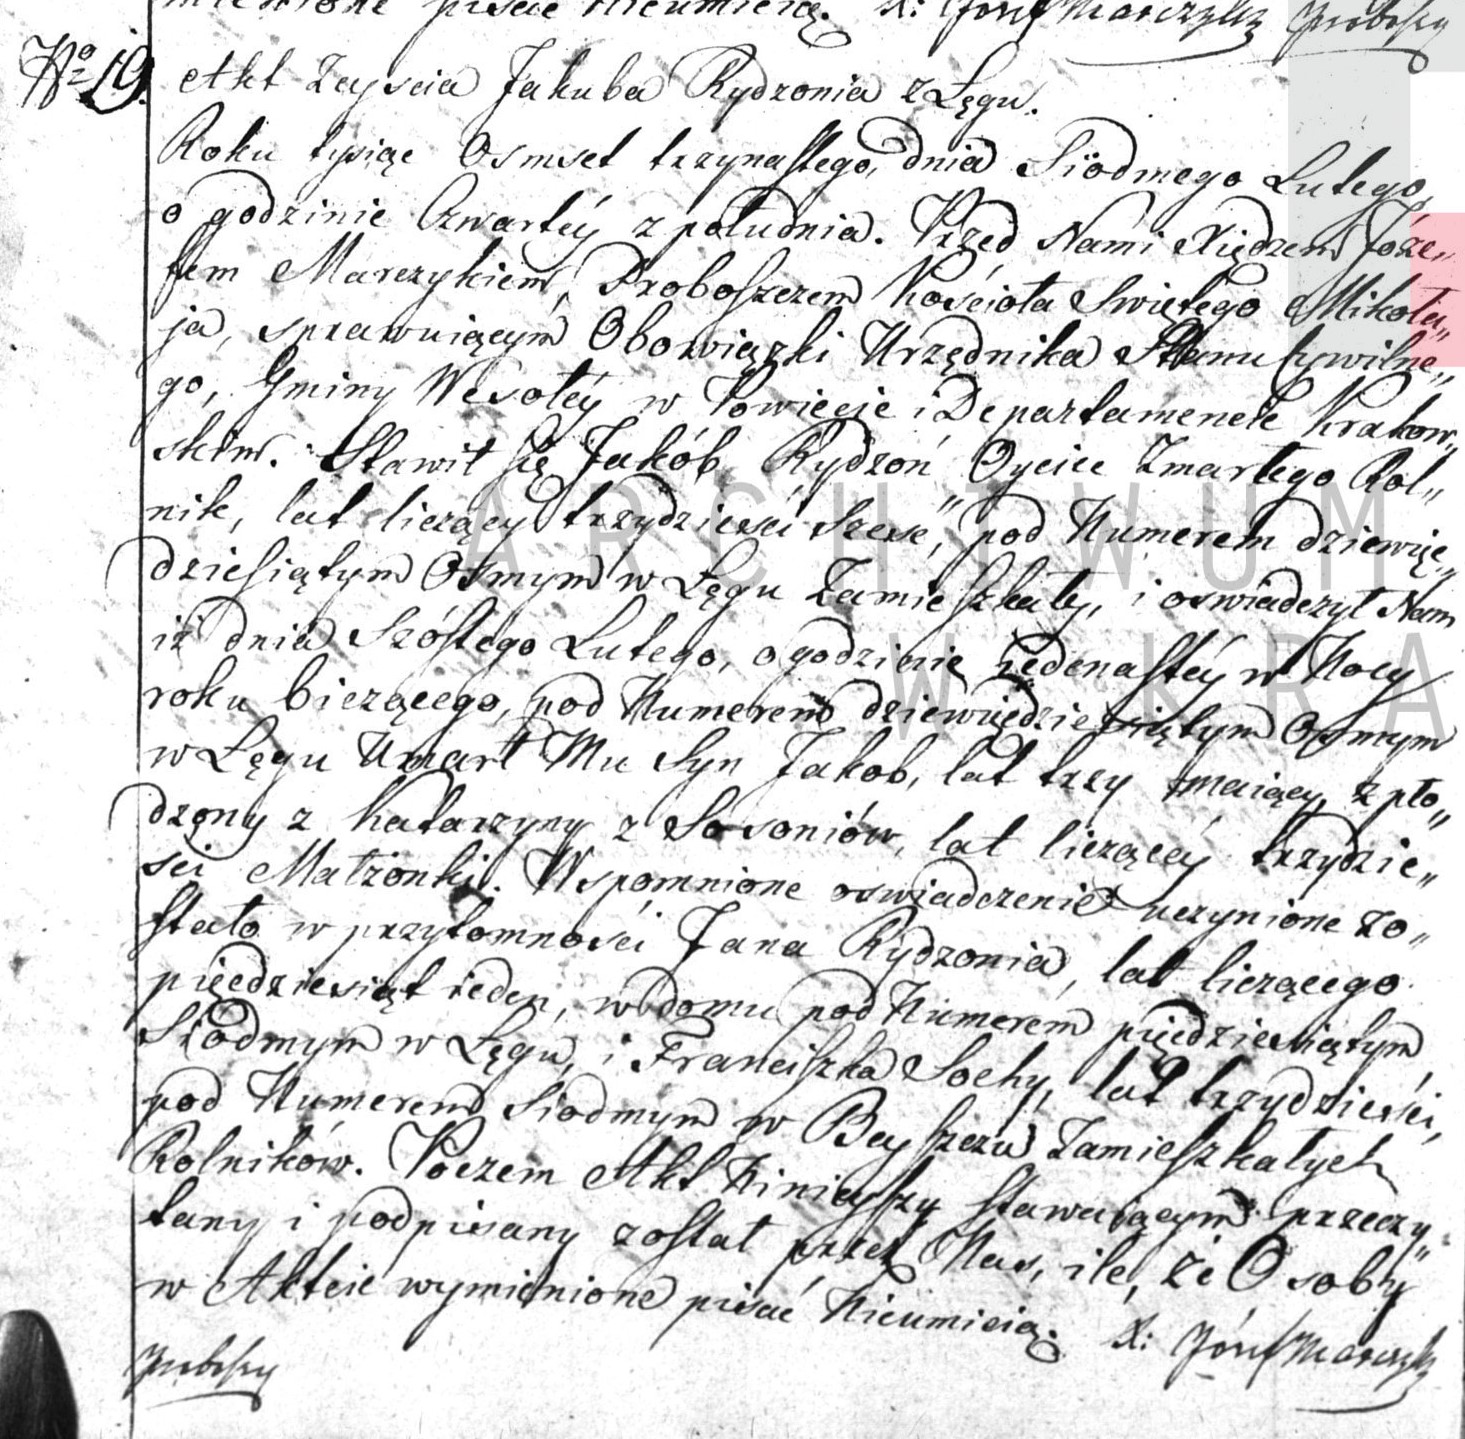 mienione pisać nieumieią. X: Józef Marczyk Proboszcz
No 19. Akt Zeyscia Jakuba Rydzonia z Łęgu.
Roku tysiąc Osmset trzynastego, dnia Siodmego Lutego,
o godzinie Czwartéy z południa. Przed Nami Xiędzem Józe„
fem Marczykiem, Proboszczem Kościoła Swiętego Mikoła„
ja, sprawuiącym Obowiązki Urzędnika Stanu Cywilne„
go, Gminy Wesołéy w Powiecie i Departamencie Krakow„
skim. Stawił się Jakób Rydzoń Oyciec Zmarłego Rol„
nik, lat liczący trzydzieści sześć, pod Numerem dziewię„
dziesiątym Osmym w Łęgu Zamieszkały, i oswiadczył Nam
iż dnia Szóstego Lutego, o godzinie iedenastéy w Nocy
roku bieżącego, pod Numerem dziewiędziesiątym Osmym
w Łęgu Umarł Mu Syn Jakob, lat trzy maiący, z pło„
dzony z Katarzyny z Sosoniów, lat liczącéy trzydzie„
sci Małżonki. Wspomnione oswiadczenie uczynione zo„
stało w przytomności Jana Rydzonia, lat liczącego
pięcdziesiąt ieden, w domu pod Numerem pięcdziesiątym
Siodmym w Łęgu, i Franciszka Sochy, lat trzydzieści,
pod Numerem Siodmym w Beyszczu Zamieszkałych
Rolników. Poczem Akt Ninieyszy stawaiącym przeczy„
tany i podpisany został przez Nas, ile, że Osoby
w Akcie wymienione pisać Nieumieią. X: Józef Marczyk
Proboszcz
ARCHIWUM
W KRA